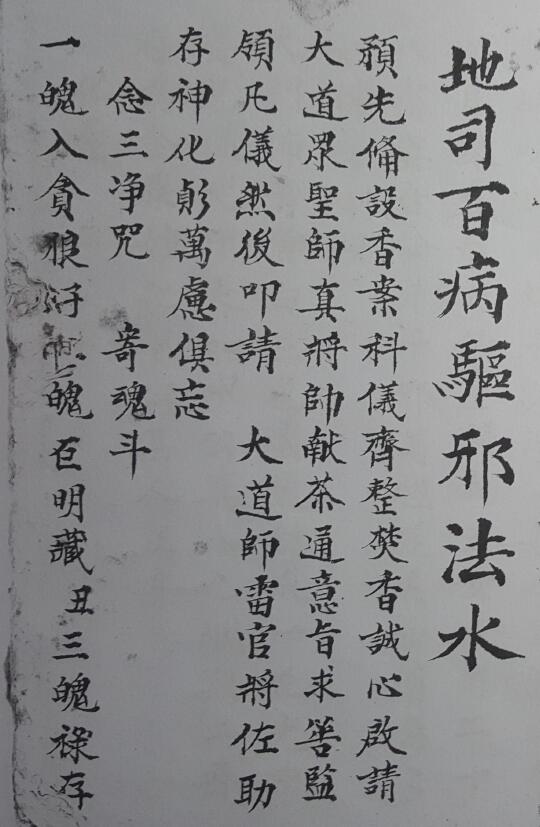 地司百病驅邪法水
預先俻設香案科儀齊整焚香誠心啟請
大道眾聖師真將帥献茶通意旨求荅監
領凡儀然後叩請　大道師雷官將佐助
存神化炁萬慮俱忘
念三净咒　寄魂斗
一魄入貪狼　魄巨明藏　丑三魄祿存